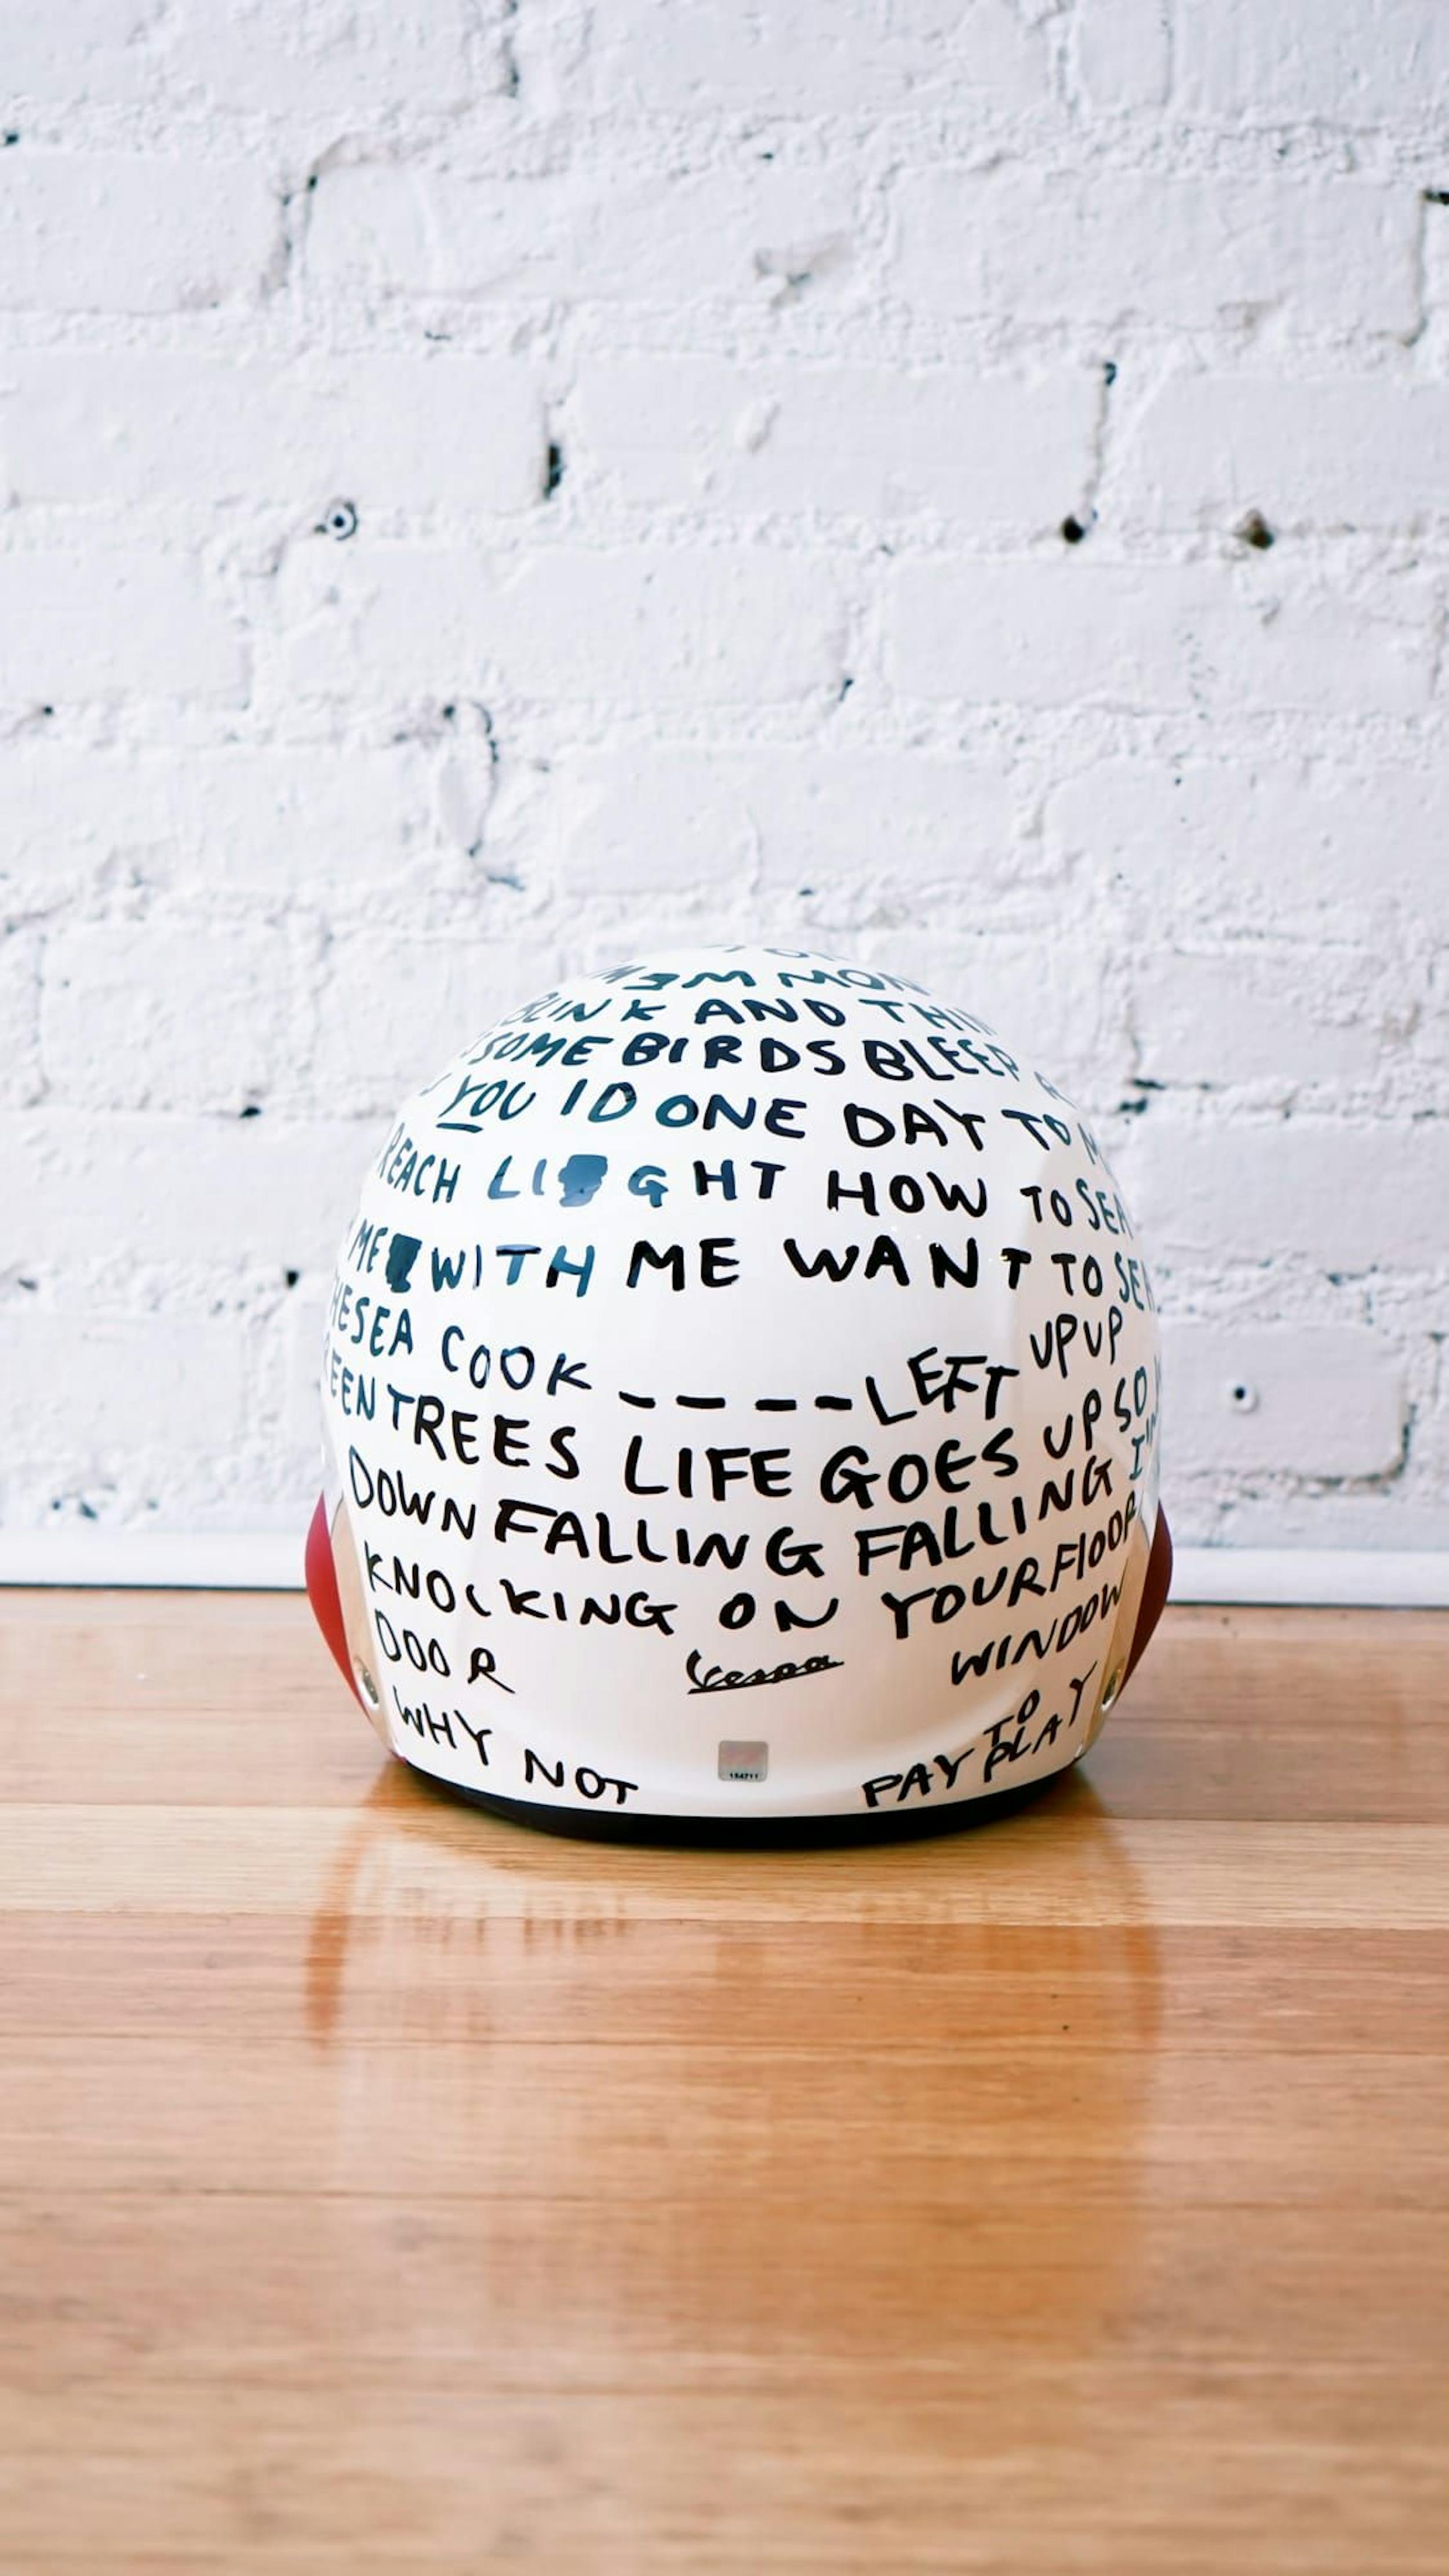 BLINK AND
SOME BIRDS BLEEP
YOU ID ONE DAY TO
REACH LI GHT HOW TO
ME WITH ME WANT TO
COOK ---- LEFT UP UP
TREES LIFE GOES UP SO
DOWN FALLING FALLING
KNOCKING ON YOUR FlOOR
DOOR Vespa WINDOW
WHY NOT PAY TO PLAY
154711